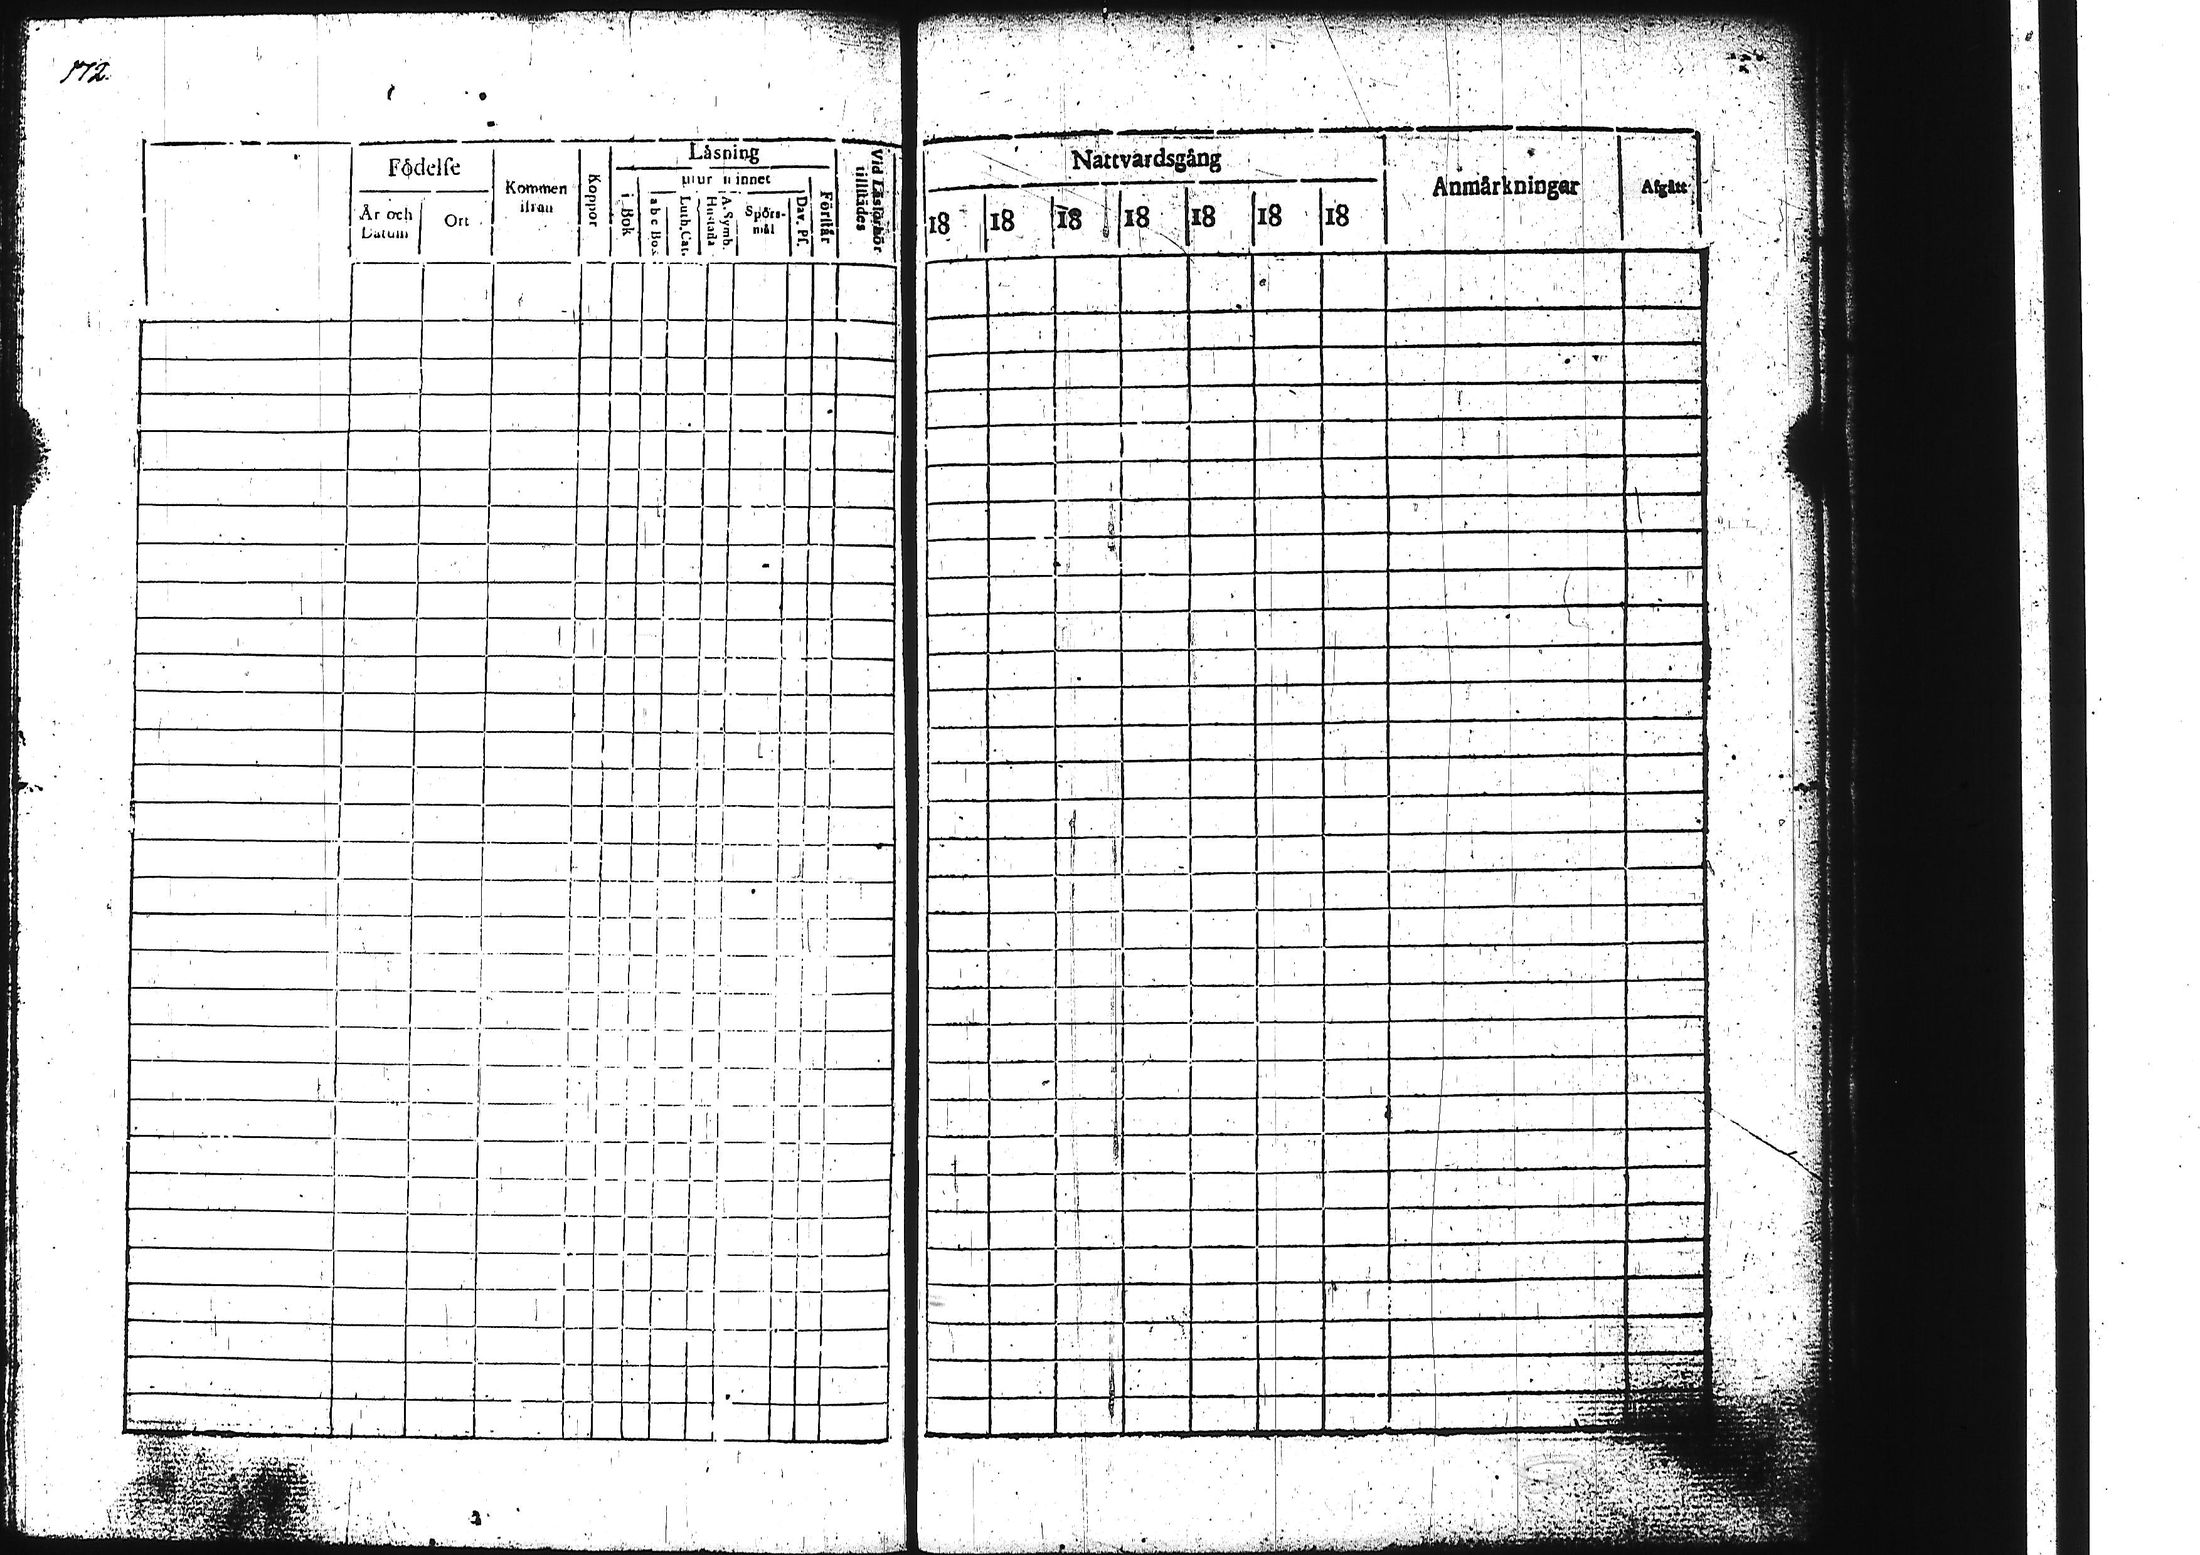 172.
Födelse
År och Datum
Ort
Kommen ifrån
Koppor
Läsning
utur minnet
i Bok
a b c Bo.
Luth. Cat.
Hustafla
A. Symb.
Spörs-mål
Dav. Ps.
Förstår
Vid Läsförhör tillstädes
Nattvardsgång
18 18 18 18 18 18 18
Anmärkningar
Afgått